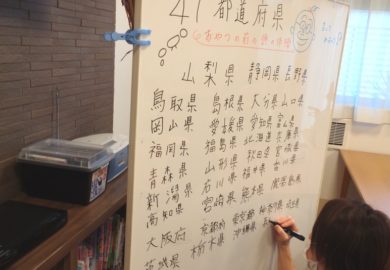 47都道府県
山梨県 静岡県 長野県
鳥取県 島根県 大分県 山口県
岡山県 愛媛県 愛知県 富山県
福岡県 福島県 北海道 兵庫県
青森県 山形県 秋田県 宮城県
新潟県 石川県 福井県 香川県
高知県 宮崎県 熊本県 鹿児島県
大阪府 京都府 東京都 神奈川県
茨城県 栃木県 沖縄県